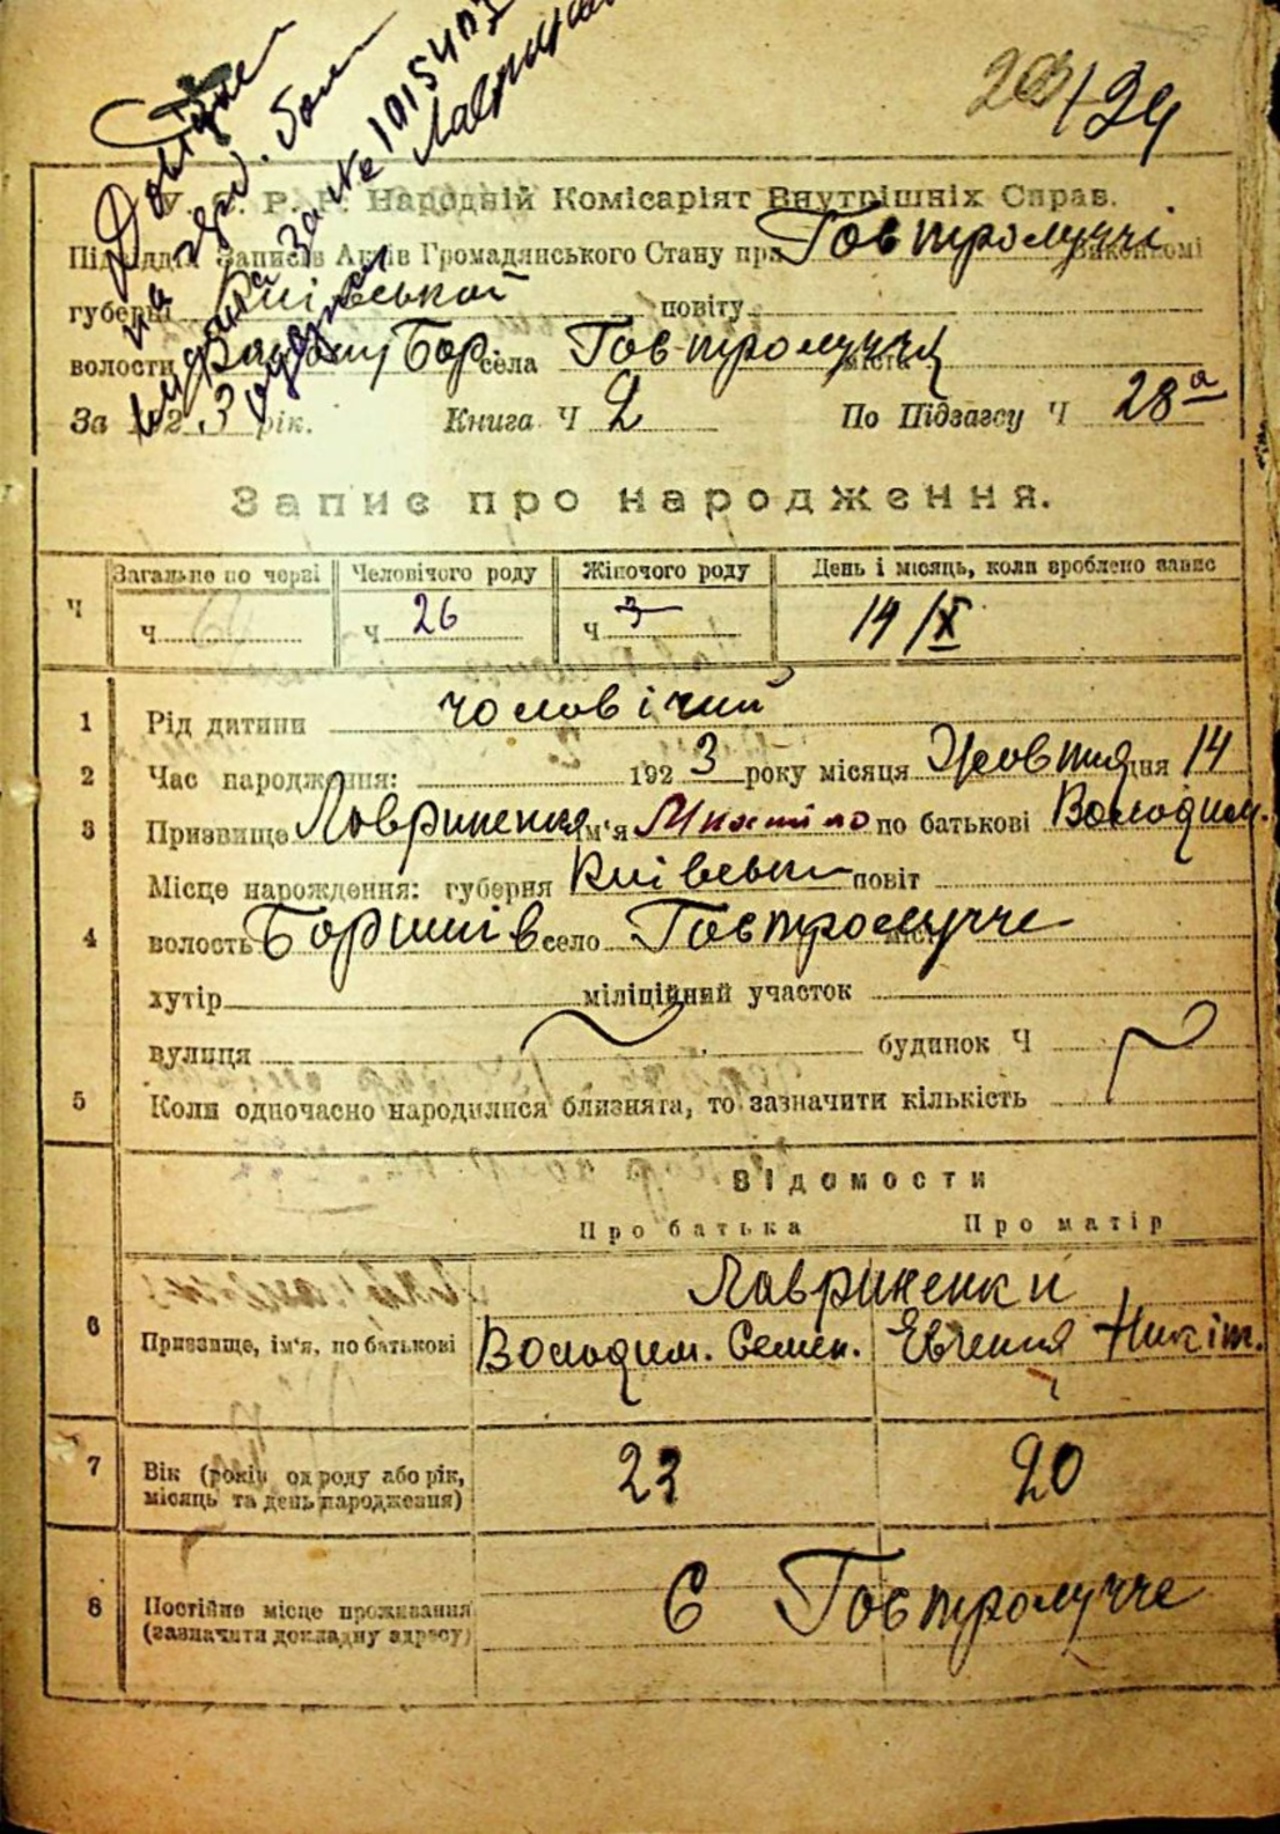 20/134
У. С. Р. Р. Народній Комісаріят Внутрішніх Справ.
Підвідділ Записів Актів Громадянського Стану при Гостролуччі Виконкомі
губерні Київської повіту
волости Району Бор. села Гостролуччя міста
За 1923 рік. Книга Ч 2 По Підзагсу Ч 28а
Запис про народження.
Загальне по черзі Человічого роду Жіночого роду День і місяць, коли зроблено запис
Ч Ч Ч 26 Ч 14/X
1 Рід дитини чоловічий
2 Час народження: 1923 року місяця Жовтня дня 14
3 Призвище Лавриненко ім'я Михайло по батькові Володим.
Місце народження: губерня Київськ повіт
4 волость Боришпів село Гостролучче місто
хутір міліційний участок
вулиця будинок Ч
5 Коли одночасно народилися близнята, то зазначити кількість
Відомости
Про батька Про матір
Лавриненки
6 Призвище, ім'я, по батькові Володим. Семен. Евгения Никіт.
7 Вік (років од роду або рік, 23 20
місяць та день народження)
8 Постійне місце проживання С Гостролучче
(зазначити докладну адресу)